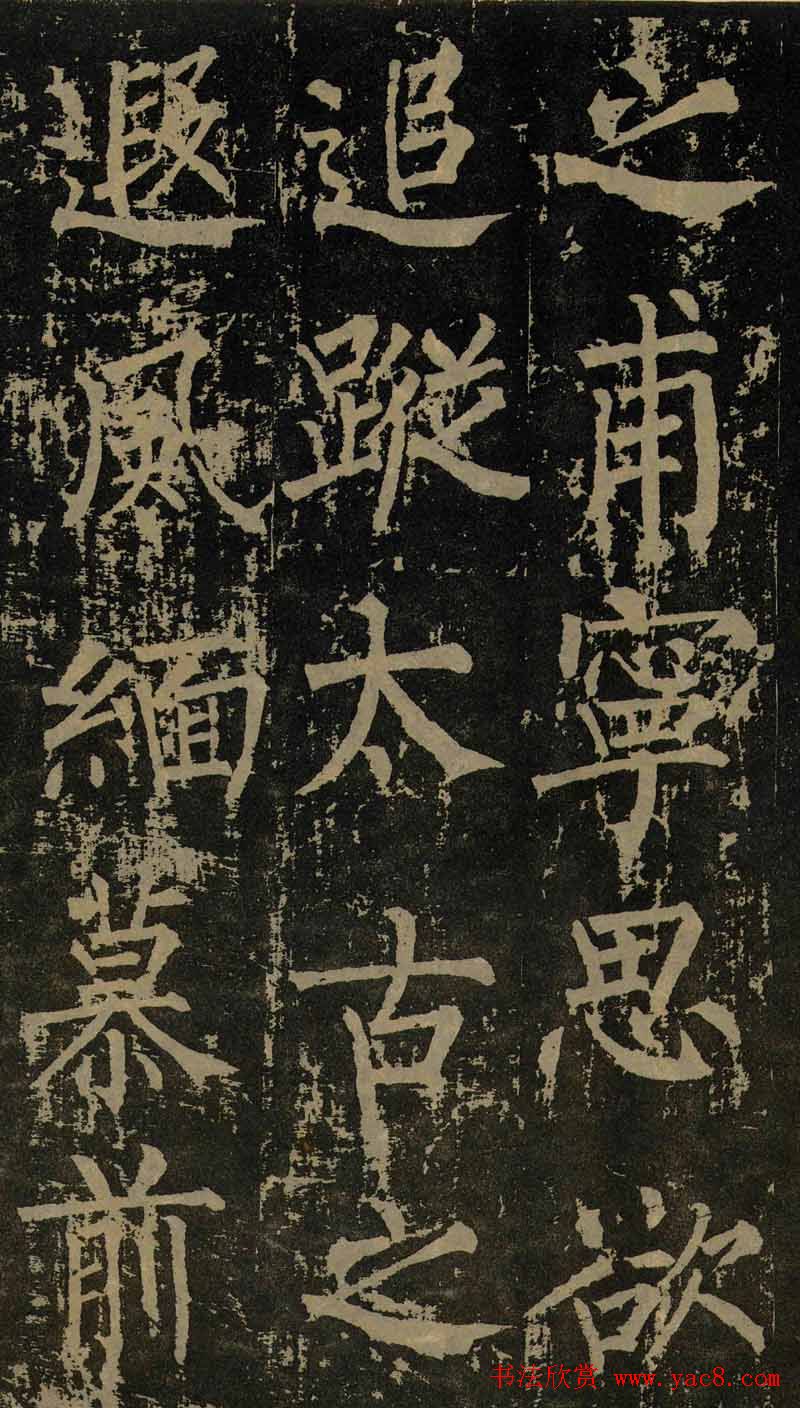 之甫寧思欲
追蹤太古之
遐風緬慕前
书法欣赏 www.yac8.com